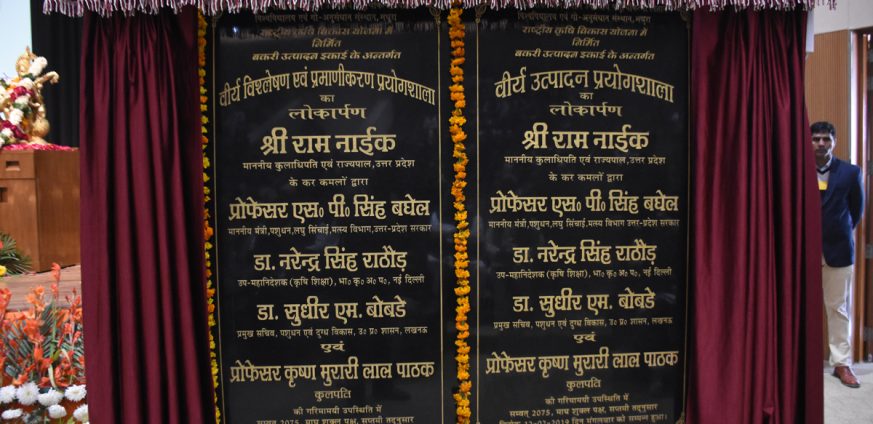 विश्वविद्यालय एवं गो-अनुसंधान संस्थान, मथुरा
राष्ट्रीय कृषि विकास योजना में
निर्मित
बकरी उत्पादन इकाई के अन्तर्गत
वीर्य विश्लेषण एवं प्रमाणीकरण प्रयोगशाला
का
लोकार्पण
श्री राम नाईक
माननीय कुलाधिपति एवं राज्यपाल, उत्तर प्रदेश
के कर कमलों द्वारा
प्रोफेसर एस० पी० सिंह बघेल
माननीय मंत्री, पशुधन, लघु सिंचाई, मत्स्य विभाग, उत्तर-प्रदेश सरकार
डा. नरेन्द्र सिंह राठौड़
उप-महानिदेशक (कृषि शिक्षा), भा० कृ० अ० प०, नई दिल्ली
डा. सुधीर एम. बोबडे
प्रमुख सचिव, पशुधन एवं दुग्ध विकास, उ० प्र० शासन, लखनऊ
एवं
प्रोफेसर कृष्ण मुरारी लाल पाठक
कुलपति
की गरिमामयी उपस्थिति में
सम्वत् 2075, माघ शुक्ल पक्ष, सप्तमी तद्नुसार
विश्वविद्यालय एवं गो-अनुसंधान संस्थान, मथुरा
राष्ट्रीय कृषि विकास योजना में
निर्मित
बकरी उत्पादन इकाई के अन्तर्गत
वीर्य उत्पादन प्रयोगशाला
का
लोकार्पण
श्री राम नाईक
माननीय कुलाधिपति एवं राज्यपाल, उत्तर प्रदेश
के कर कमलों द्वारा
प्रोफेसर एस० पी० सिंह बघेल
माननीय मंत्री, पशुधन, लघु सिंचाई, मत्स्य विभाग, उत्तर-प्रदेश सरकार
डा. नरेन्द्र सिंह राठौड़
उप-महानिदेशक (कृषि शिक्षा), भा० कृ० अ० प०, नई दिल्ली
डा. सुधीर एम. बोबडे
प्रमुख सचिव, पशुधन एवं दुग्ध विकास, उ० प्र० शासन, लखनऊ
एवं
प्रोफेसर कृष्ण मुरारी लाल पाठक
कुलपति
की गरिमामयी उपस्थिति में
सम्वत् 2075, माघ शुक्ल पक्ष, सप्तमी तद्नुसार
दिनांक 12-02-2019 दिन मंगलवार को सम्पन्न हुआ।